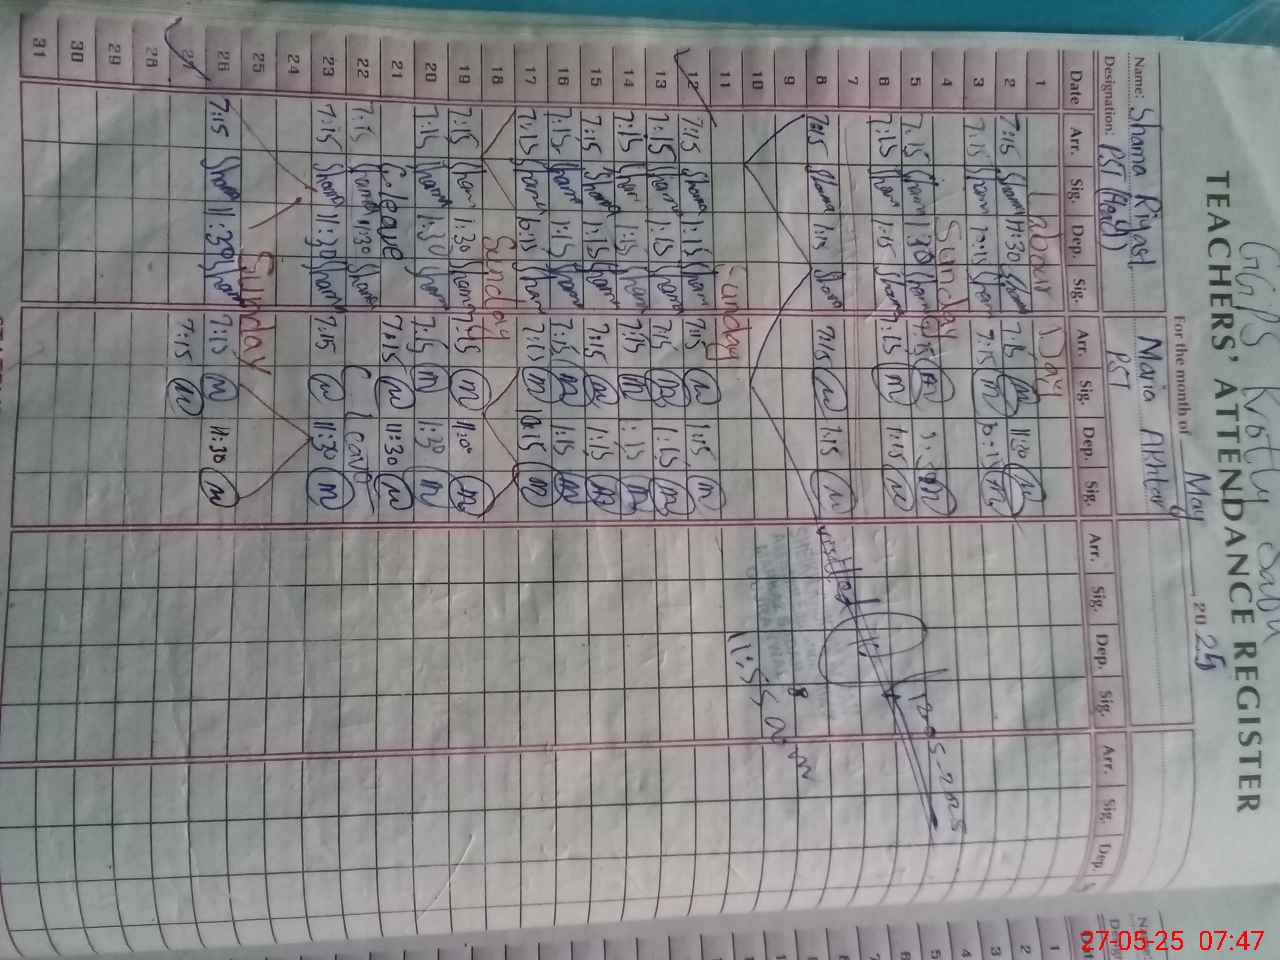 TEACHERS' ATTENDANCE REGISTER
For the month of May 2025
Name: Shama Riyast Maria Akhtar
Designation: PST (Head) PST
Date Arr. Sig. Dep. Sig. Arr. Sig. Dep. Sig. Arr. Sig. Dep. Sig. Arr. Sig. Dep.
1 Labour Day
2 7:15 Shama 11:30 Shama 7:15 m 11:30 m
3 7:15 Sham Sham 7:15 m m
4 Sunday
5 7:15 Sham 1:30 Sham 7:15 m m
6 7:15 Sham 1:15 Shama 7:15 m 1:15 m
7
8 7:15 Shama 1:15 Shama 7:15 m 1:15 m
9
10
11 Sunday
12 7:15 Shama 1:15 Shama 7:15 m 1:15 m
13 7:15 Shama 1:15 Shama 7:15 m 1:15 m
14 7:15 Sham 1:15 Sham 7:15 m 1:15 m
15 7:15 Shama 1:15 Sham 7:15 m 1:15 m
16 7:15 Shama 1:15 Sham 7:15 m 1:15 m
17 7:15 Sham 10:15 Sham 7:15 m 10:15 m
18 Sunday
19 7:15 Sham 1:30 Sham 7:15 m m
20 7:15 Sham 1:30 Sham 7:15 m 1:30 m
21 C. Leave 7:15 m 11:30 m
22 7:15 Shama 11:30 Shama C Leave
23 7:15 Shama 11:30 Sham 7:15 m 11:30 m
24
25 Sunday
26 7:15 Sham 11:30 Sham 7:15 m 11:30 m
27 7:15 m
28
29
30
31
11:55 am
27-05-25 07:47